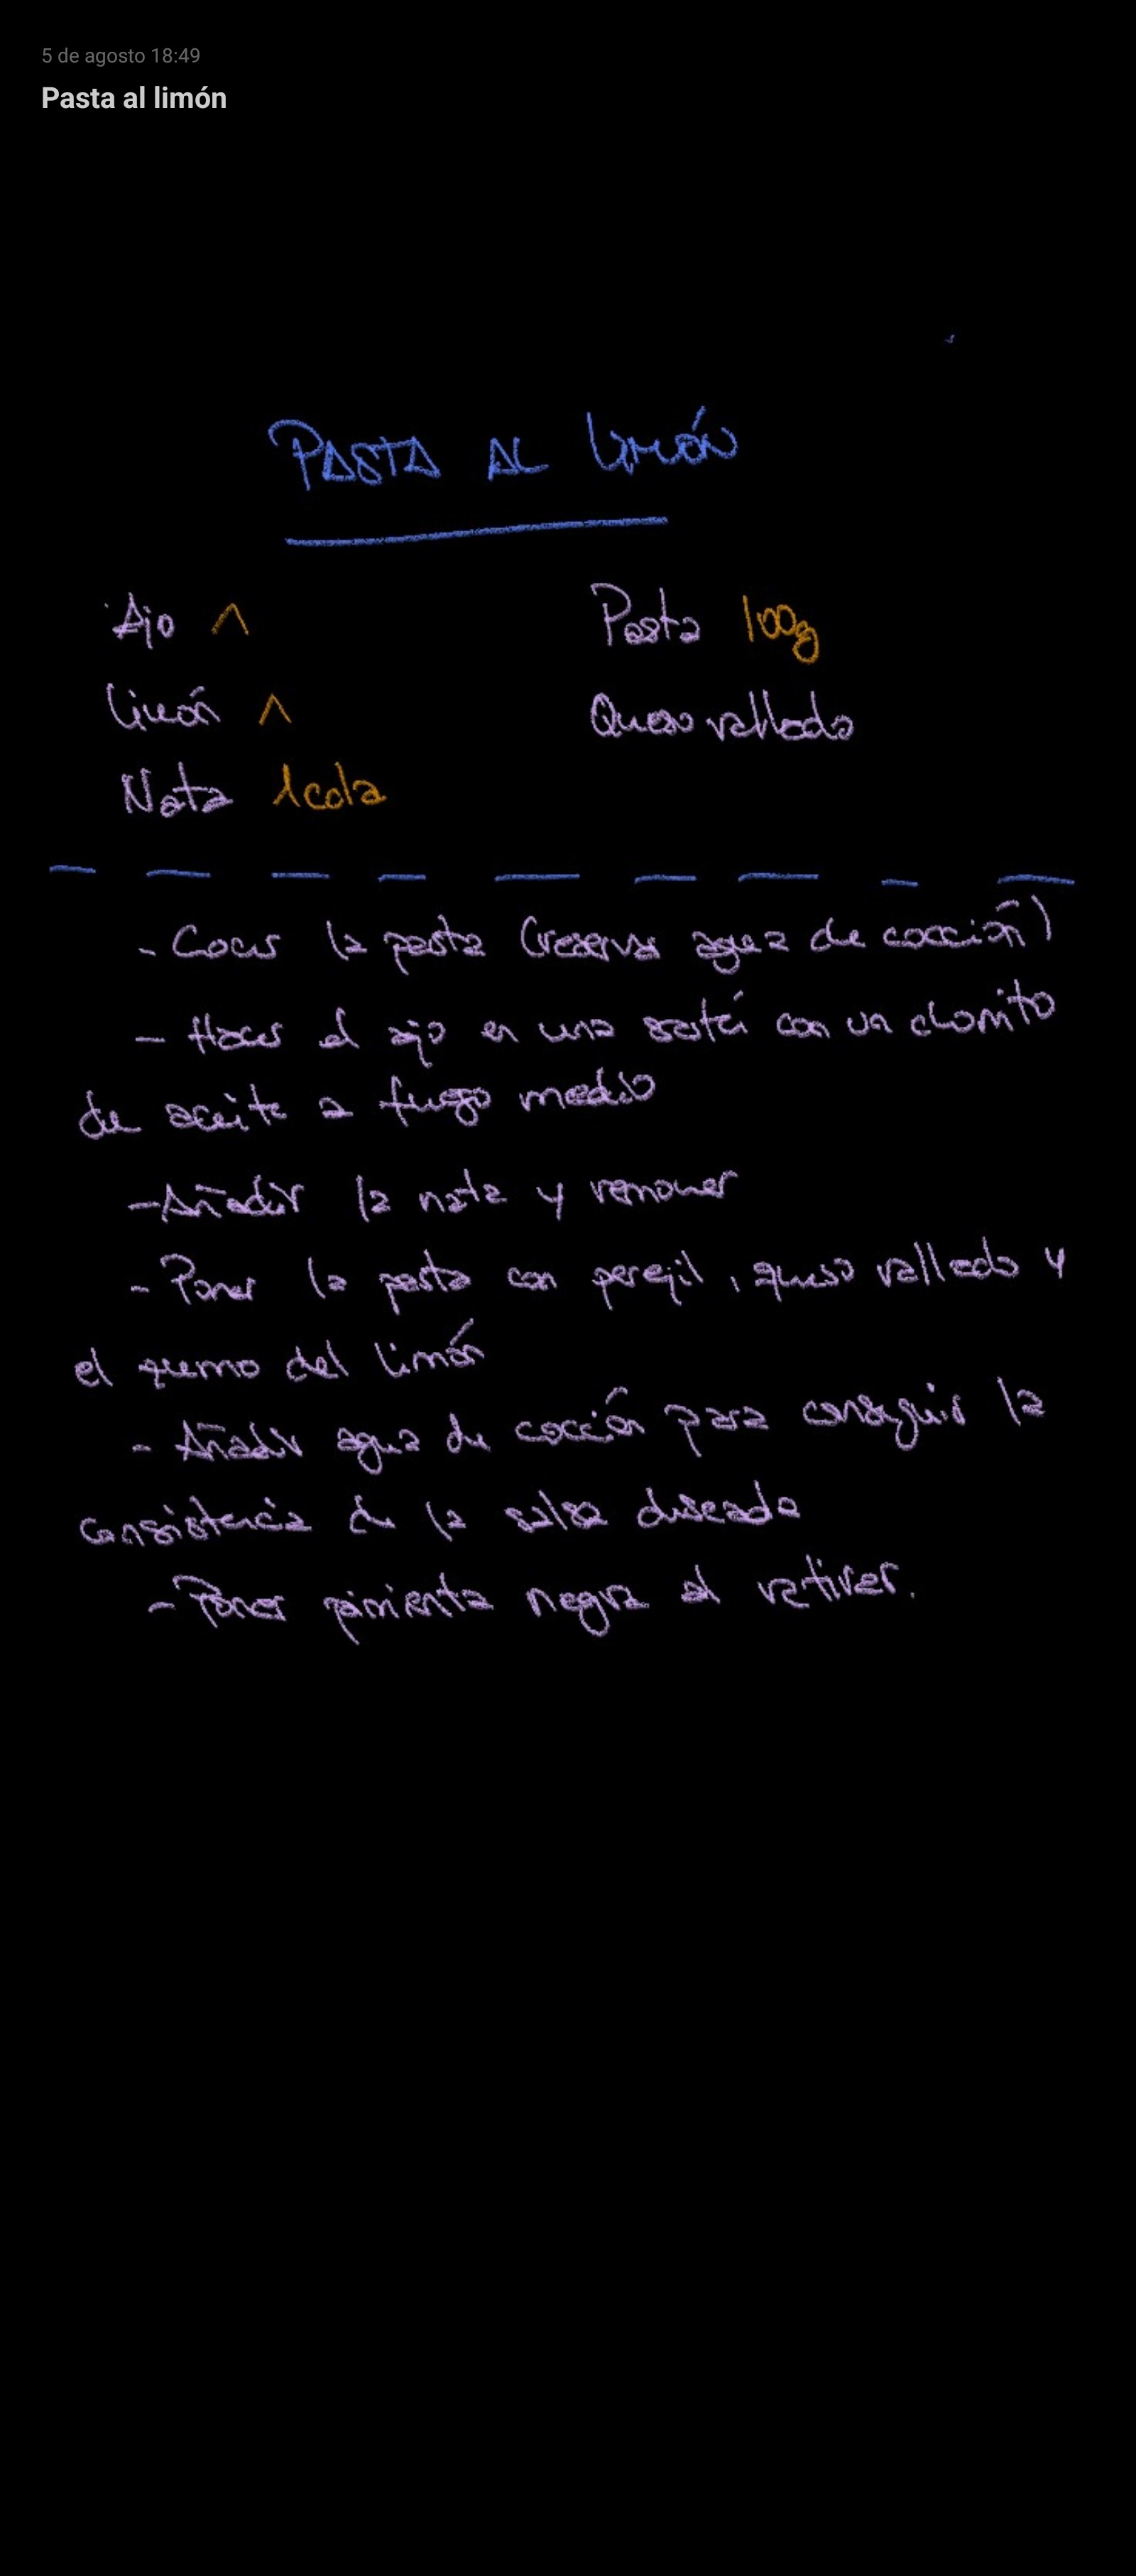 5 de agosto 18:49
Pasta al limón
PASTA AL LIMÓN
Ajo 1 Pasta 100g
Limón 1 Queso rallado
Nata 1cda
- Cocer la pasta (reservar agua de cocción)
- Hacer el ajo en una sartén con un chorrito
de aceite a fuego medio
- Añadir la nata y remover
- Poner la pasta con perejil, queso rallado y
el zumo del limón
- Añadir agua de cocción para conseguir la
consistencia de la salsa deseada
- Poner pimienta negra al retirar.